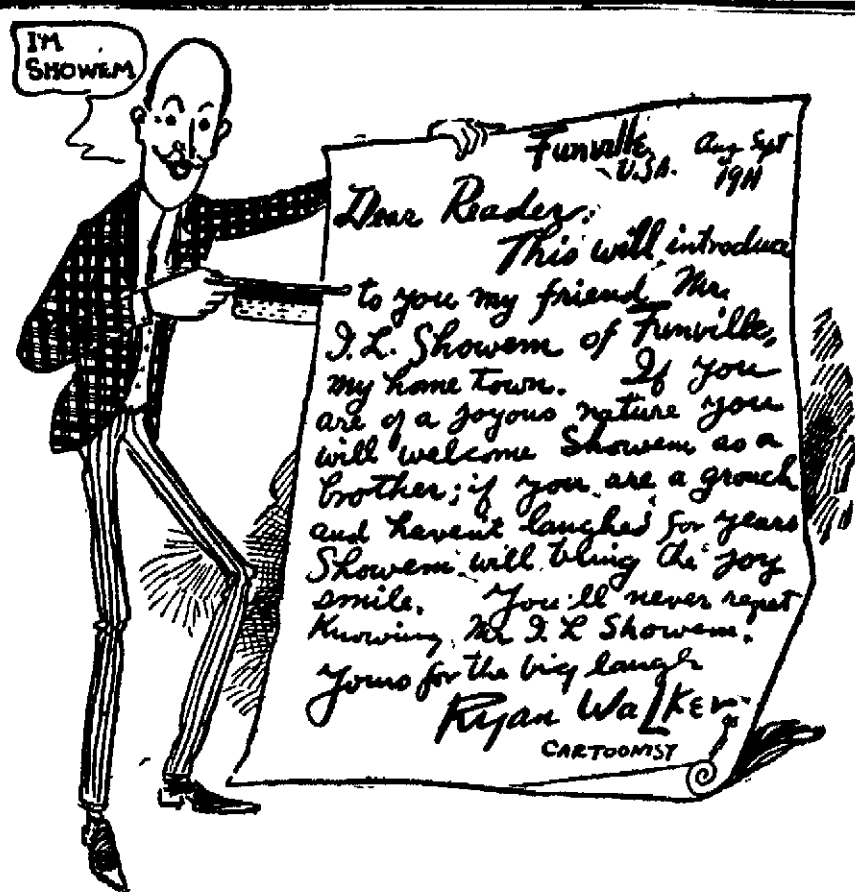 I'M
SHOWEM
Funville, Aug Sept
U.S.A. 1911
Dear Reader:
This will introduce
to you my friend, Mr.
I. L. Showem of Funville,
my home town. If you
are of a joyous nature you
will welcome Showem as a
brother; if you are a grouch
and haven't laughed for years
Showem will bring the joy
smile. You'll never regret
Knowing Mr I L Showem.
Yours for the big laugh
Ryan Walker
CARTOONIST